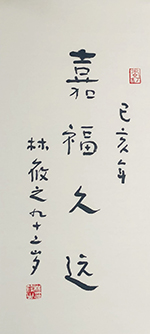 己亥年
嘉福久远
林筱之九十二岁